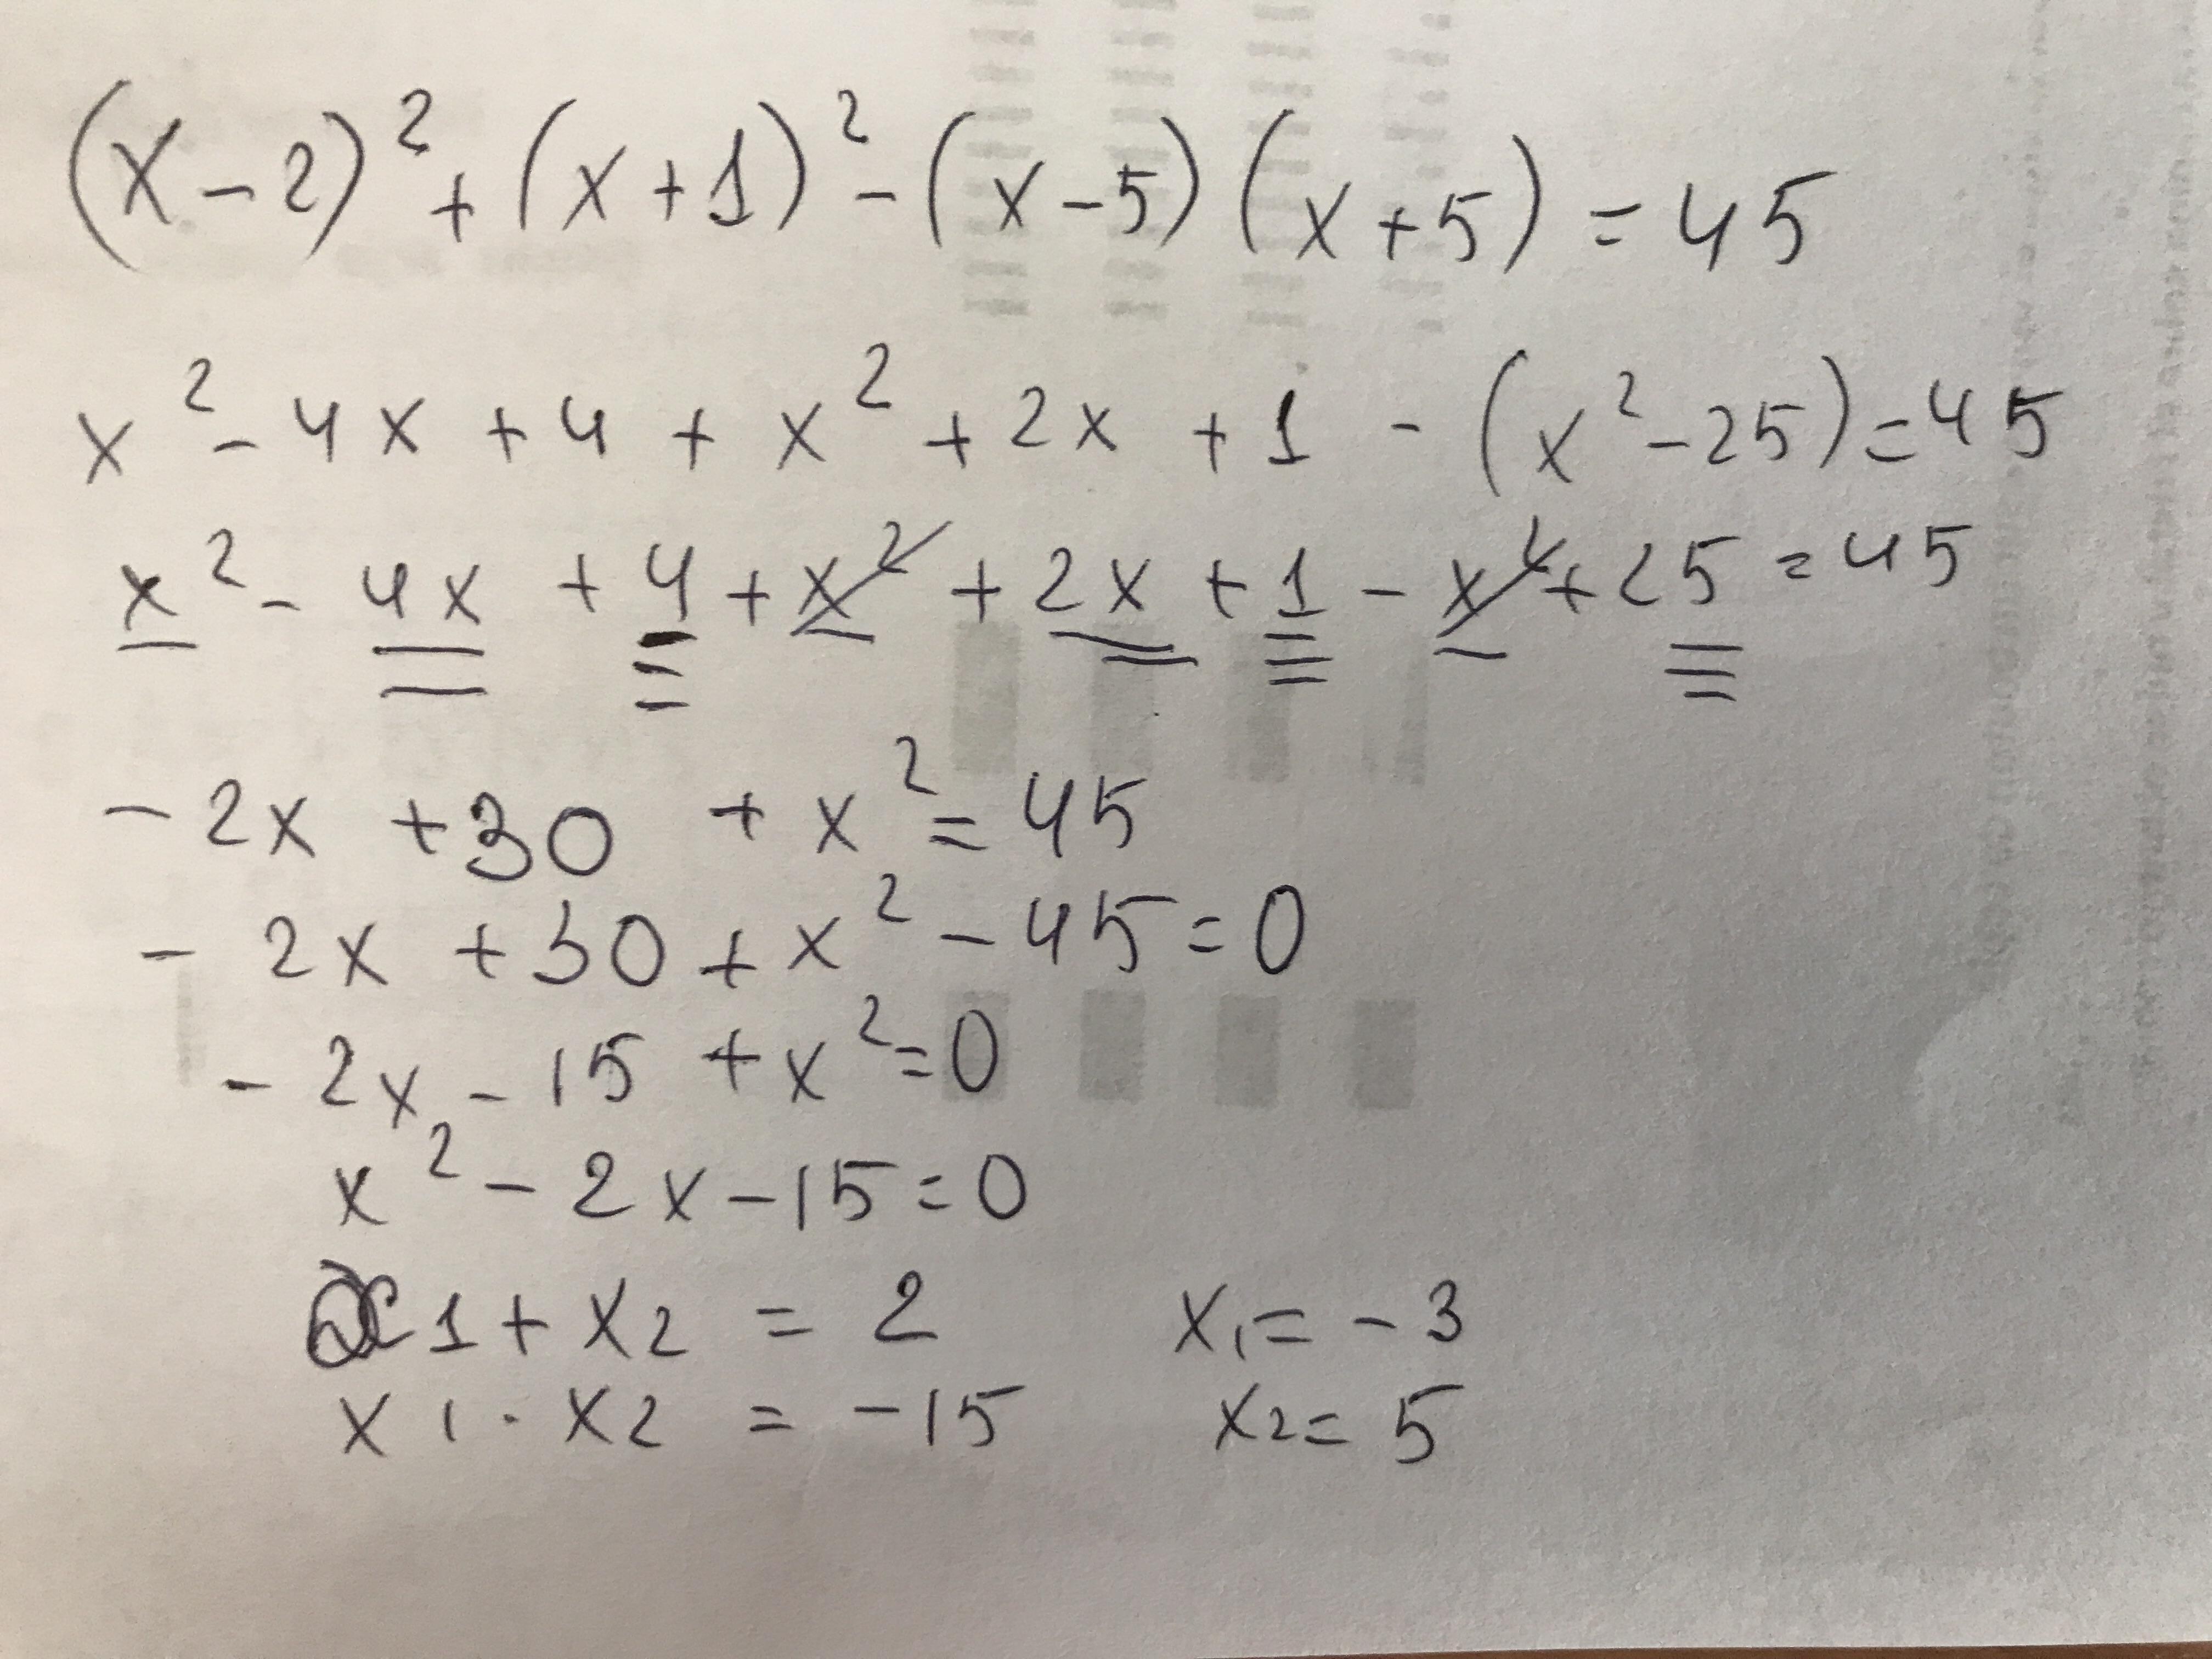 (x-2)² + (x+1)² - (x-5)(x+5) = 45
x² - 4x + 4 + x² + 2x + 1 - (x² - 25) = 45
x² - 4x + 4 + x² + 2x + 1 - x² + 25 = 45
- 2x + 30 + x² = 45
- 2x + 30 + x² - 45 = 0
- 2x - 15 + x² = 0
x² - 2x - 15 = 0
x1 + x2 = 2 x1 = - 3
x1 · x2 = -15 x2 = 5